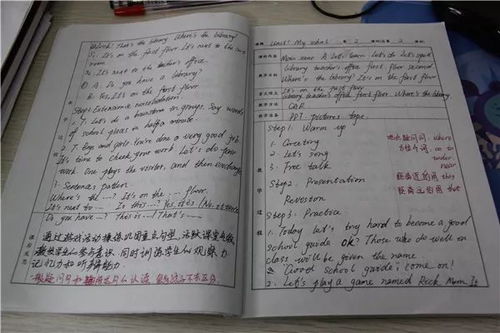 Watch! That's the library. Where's the library?
It's on the first floor. It's next to the
room
It's next to the teacher's office.
A: Do you have a library?
B: Yes. It's on the first floor.
Step4. Extension & consolidation
1. T: Let's do a brainstorm in groups. Say words
of school places in half a minute.
2. T: Boys and girls. You've done a very good job.
It's time to check your work. Let's do pair
work. One plays the visitor, and then exchange
3. Sentence pattern
Where's the …? It's on the … floor.
It's next to … Is this …? Yes, it is. / No, it isn't
Do you have …? This is … That's
通过游戏活动操练巩固重点句型,活跃课堂气氛
学生们的参与意识 同时训练学生们的观察力
记忆力和听辨能力。
Unit1 My school 2
Main scene A Let's learn Let's do Let's spell
library teacher's office first floor second
Where's the library? It's on the first floor
It's on the first floor
library teacher's office first floor Where's the library
CAR
PPT pictures tape
Step1. Warm up
1. Greeting
2. Let's song
3. Free talk
Step2. Presentation
Revision
地点疑问词: where
方位介词: on
to
under
near
距离近的用 this
距离远的用 that
Step3. Practice
1. Today let's try hard to become a good
school guide ok? Those who do well in
class will be given the name
Good school guide; come on!
2. Let's play a game named Rock Mum. Is